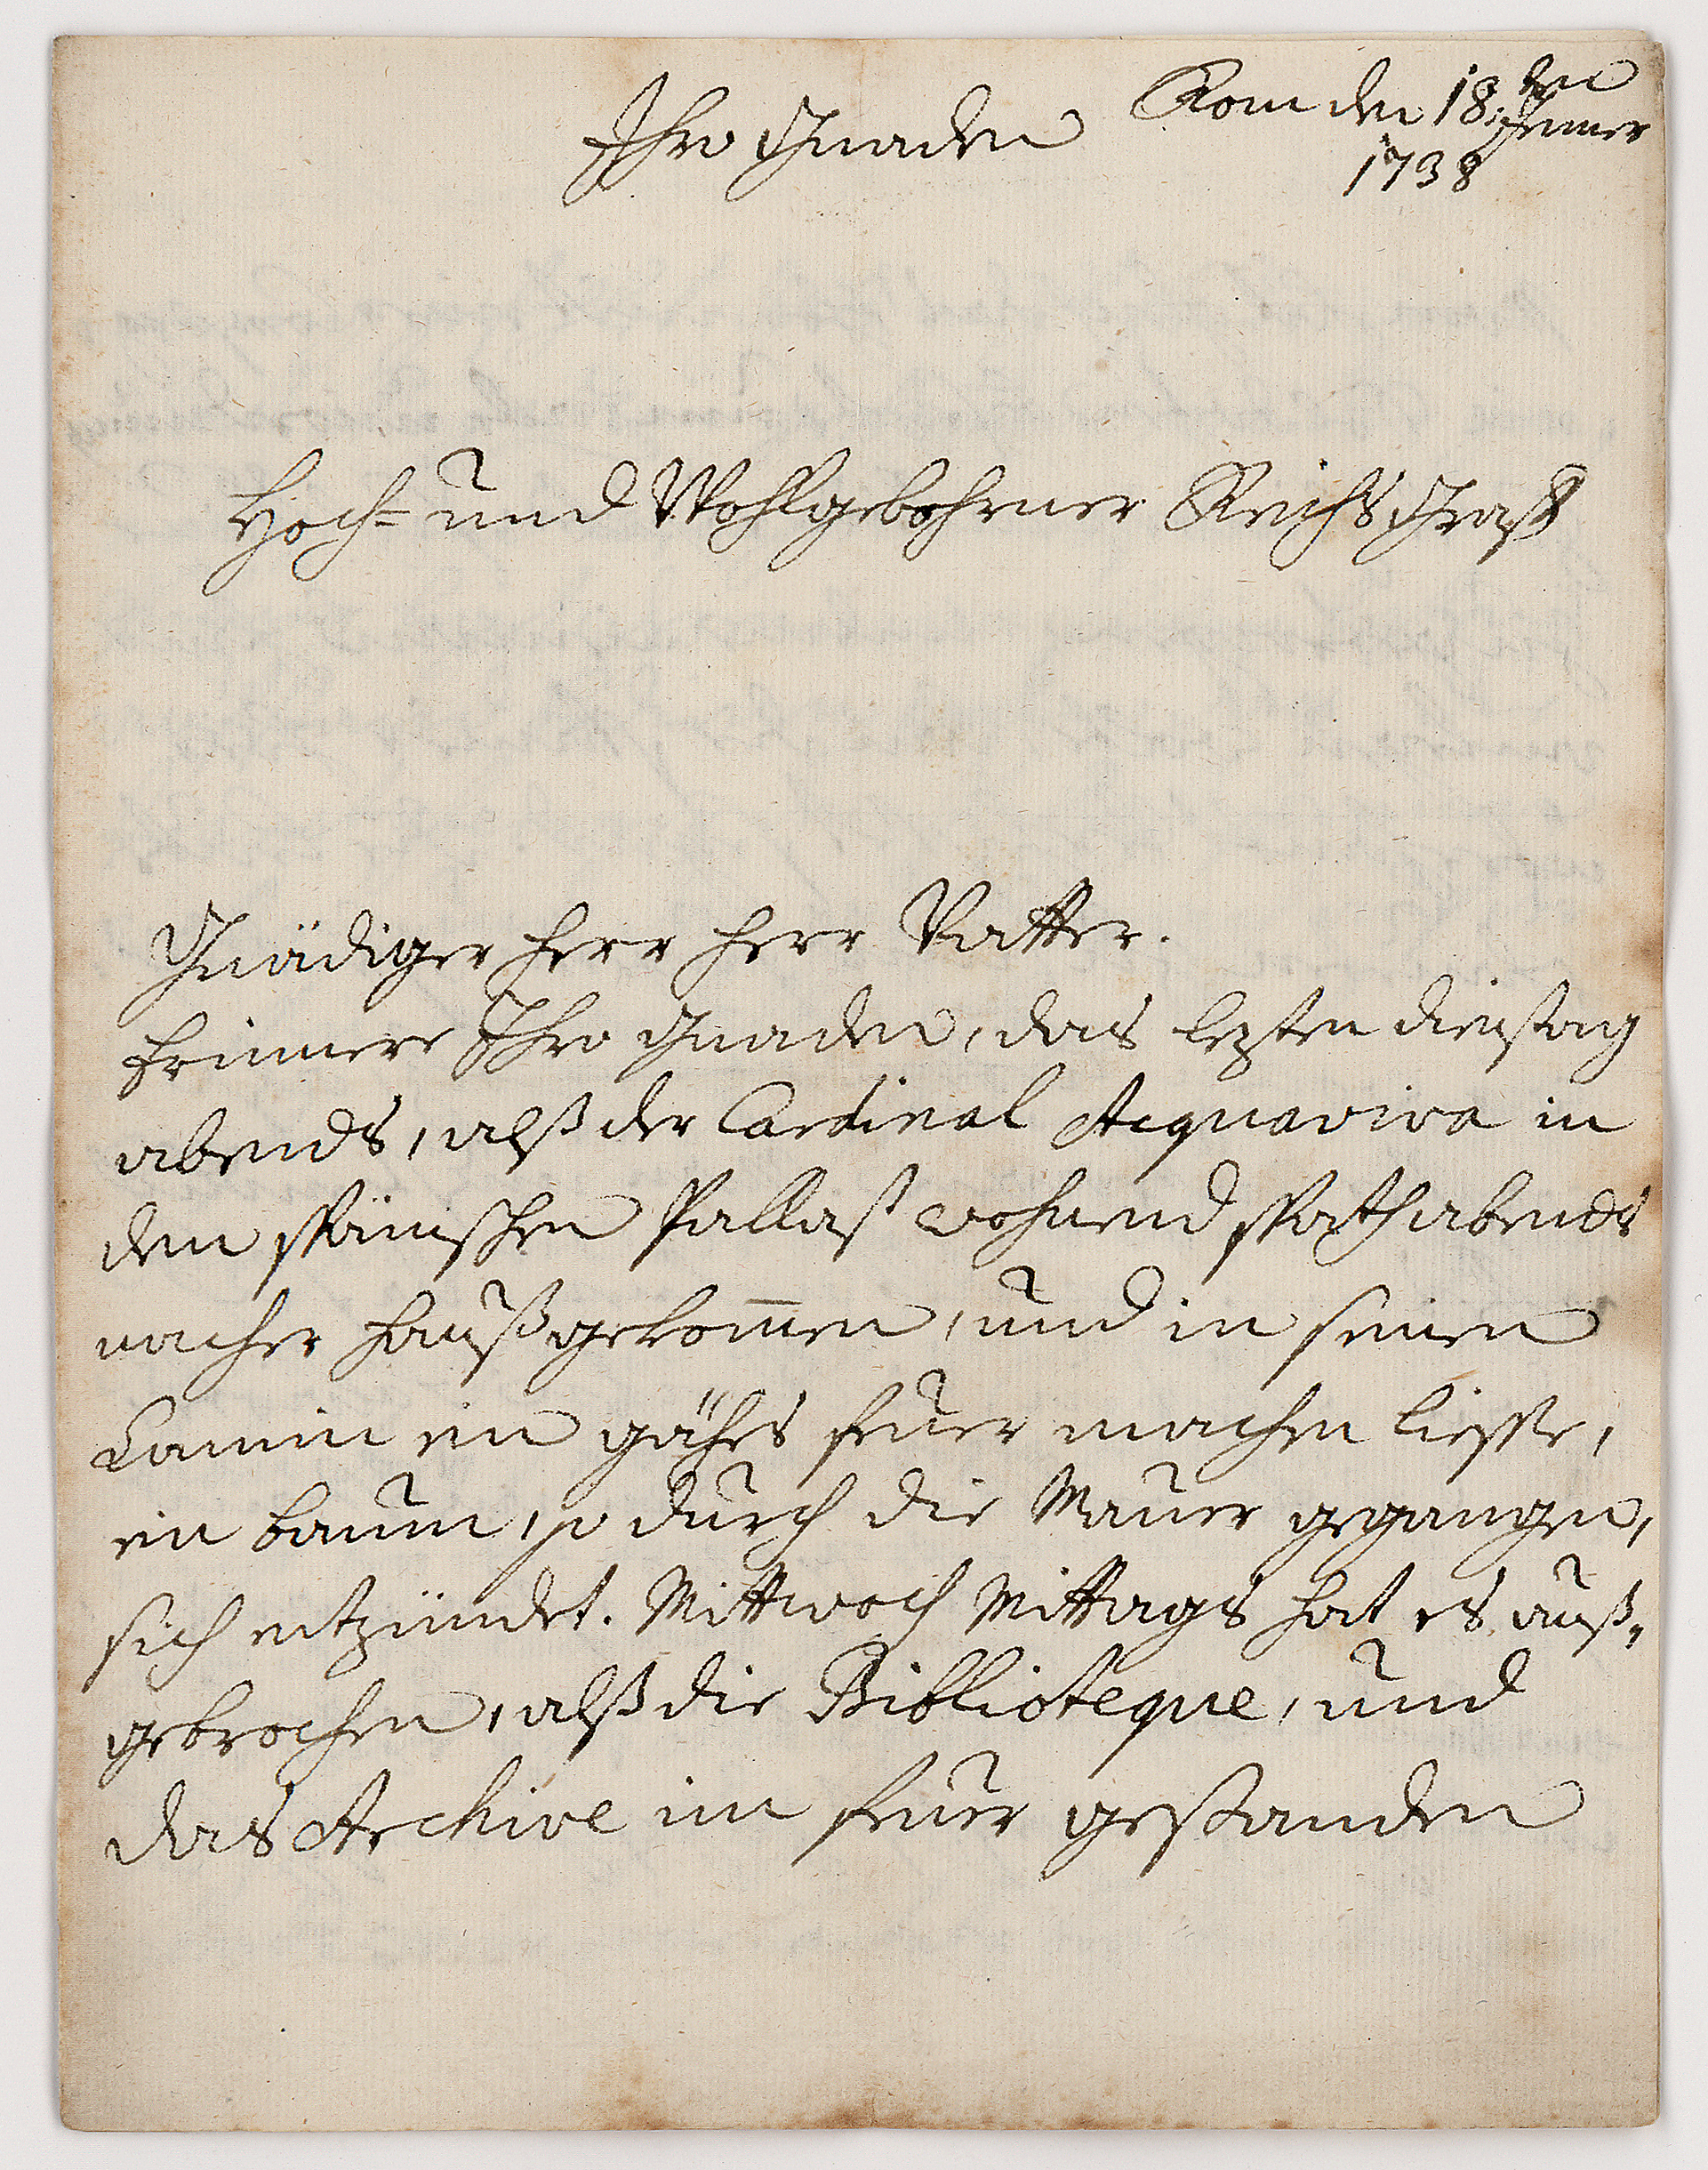 Rom den 18.ten Jenner
1738
Ihro Gnaden
Hoch- und Wohlgebohrner Reichs Graff
Gnädiger Herr Herr Vatter.
Erinnere Ihro Gnaden, das lezten dienstag
abends, alß der Cardinal Acquaviva in
dem spänischen Pallast wohnend spath abends
nacher Hauß gekom̄en, und in seinen
Camin ein gähes feuer machen liesse,
ein baum, so durch die Mauer gegangen,
sich entzündet. Mittwoch Mittags hat es auß-
gebrochen, alß die Biblioteque, und
das Archive im feuer gestanden